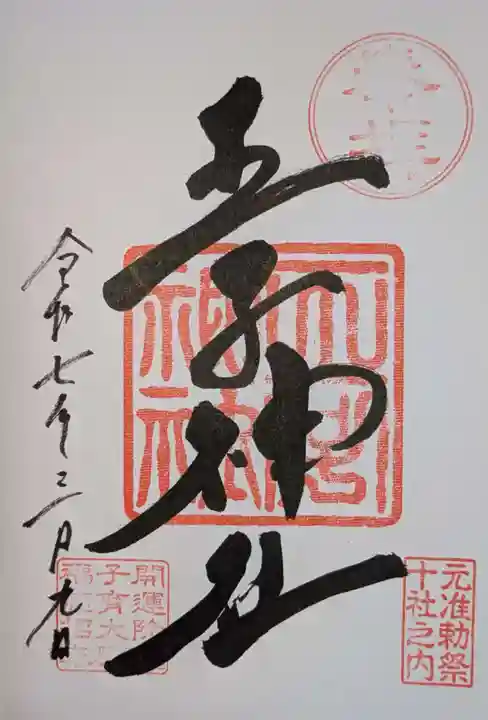 王子神社
元准勅祭
十社之内
令和七年三月九日
開運除
子育大